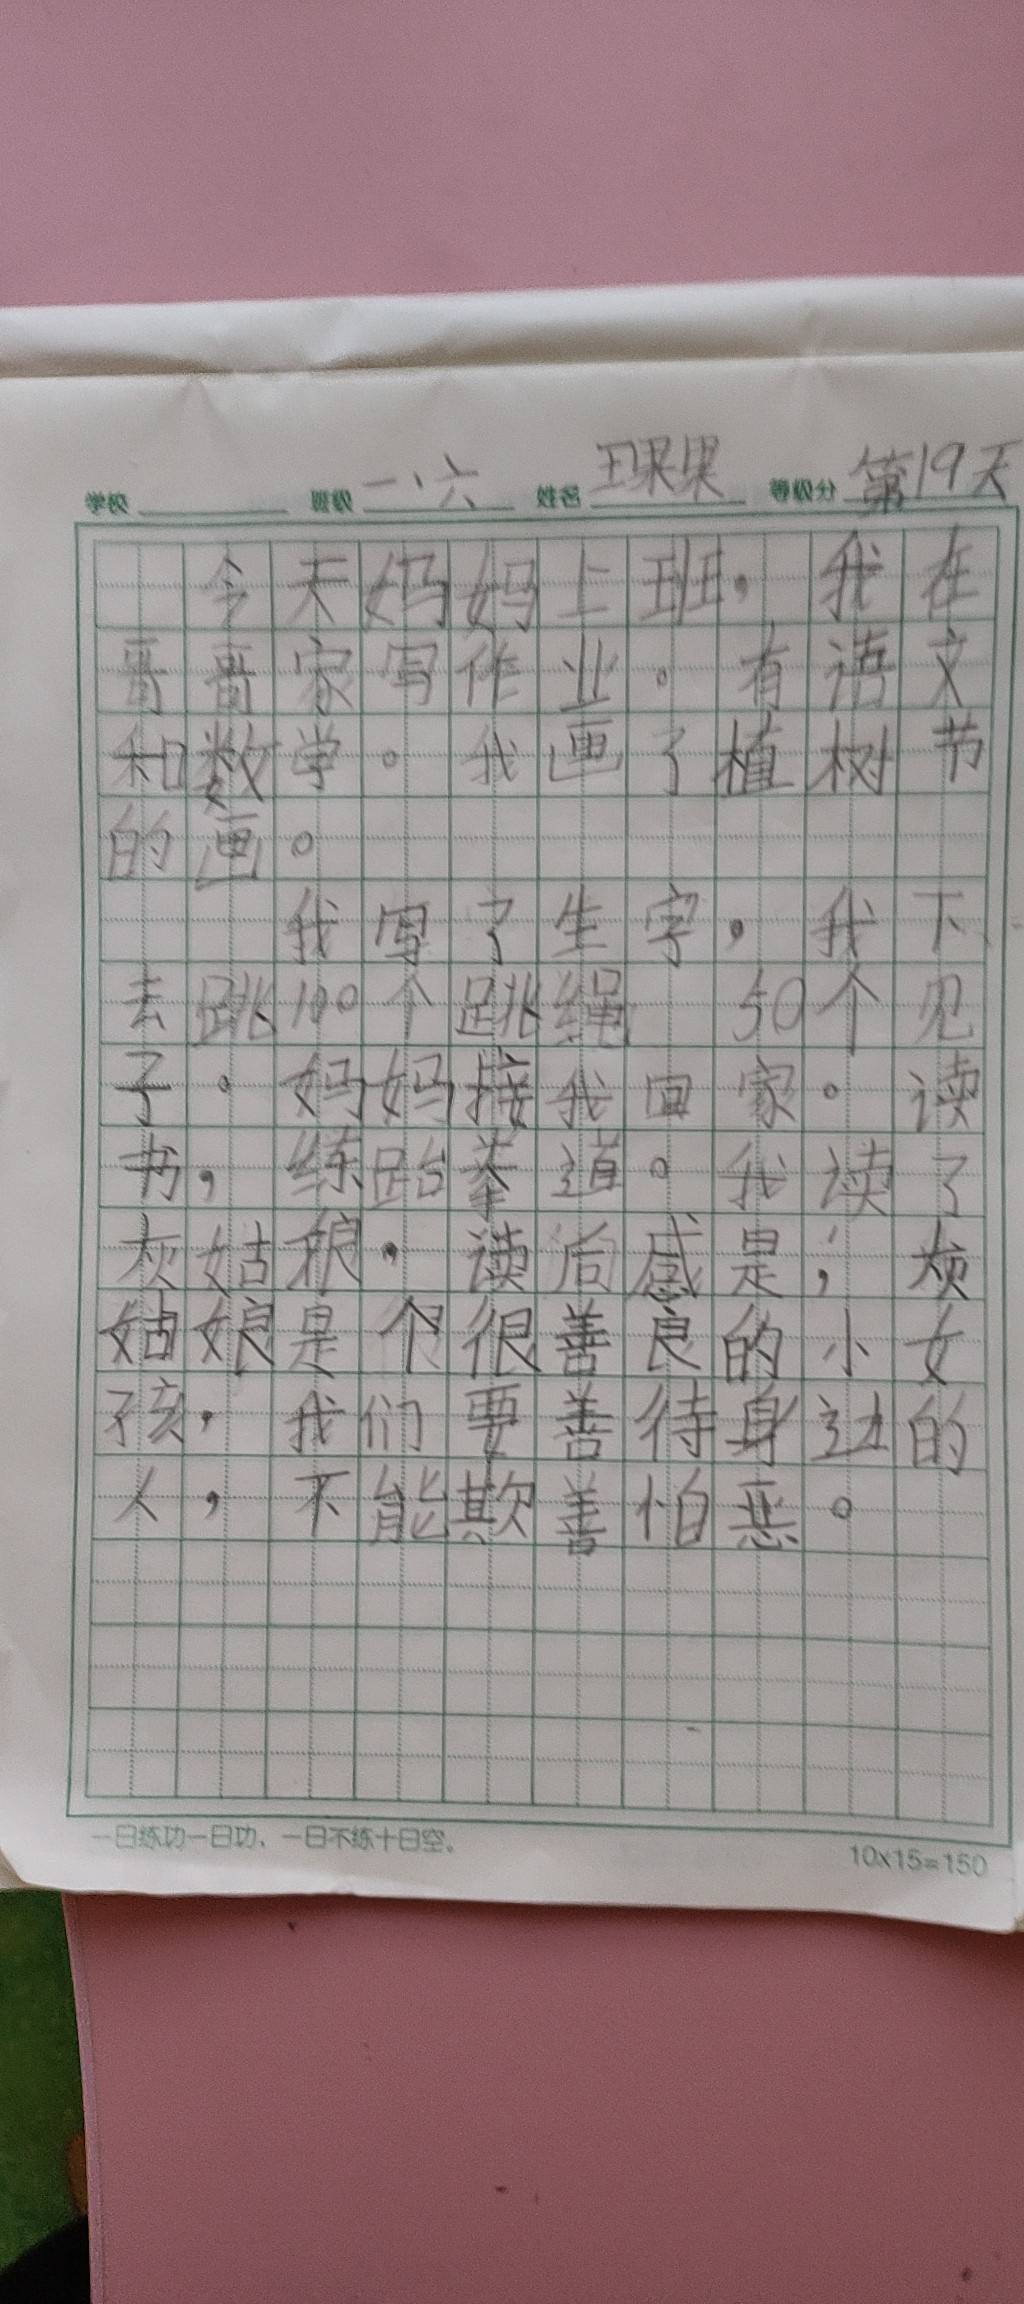 学校 班级 一、六 姓名 王果果 等级分 第19天
今天妈妈上班，我在
哥哥家写作业。有语文
和数学。我画了植树节
的画。
我写了生字，我下
去跳100个跳绳 50个见
子。妈妈接我回家。读
书，练跆拳道。我读了
灰姑狼。读后感是；灰
姑娘是个很善良的小女
孩，我们要善待身边的
人，不能欺善怕恶。
一日练功一日功、一日不练十日空。
10x15=150